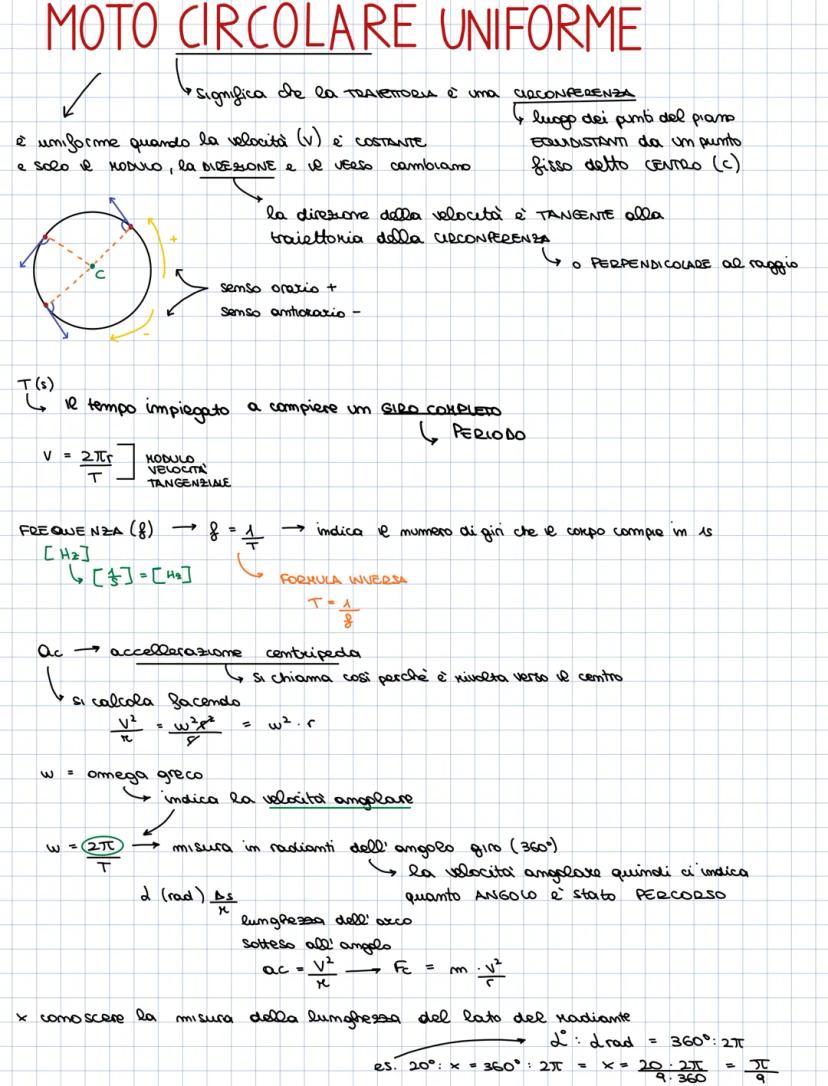 MOTO CIRCOLARE UNIFORME
significa che la TRAIETTORIA è una CIRCONFERENZA
luogo dei punti del piano
EQUIDISTANTI da un punto
fisso detto CENTRO (C)
è uniforme quando la velocità (v) è COSTANTE
e solo il MODULO, la DIREZIONE e il VERSO cambiano
la direzione della velocità è TANGENTE alla
traiettoria della CIRCONFERENZA
o PERPENDICOLARE al raggio
+
C
-
senso orario +
senso antiorario -
T(s)
il tempo impiegato a compiere un GIRO COMPLETO
PERIODO
V = 2πr/T ] MODULO
VELOCITÀ
TANGENZIALE
FREQUENZA (f) → f = 1/T → indica il numero di giri che il corpo compie in 1s
[Hz]
[1/s] = [Hz]
FORMULA INVERSA
T = 1/f
ac → accellerazione centripeda
si chiama così perchè è rivolta verso il centro
si calcola facendo
V²/r = w²r²/r = w² · r
w = omega greco
indica la velocità angolare
w = 2π/T → misura in radianti dell'angolo giro (360°)
la velocità angolare quindi ci indica
quanto ANGOLO è stato PERCORSO
α (rad) Δs/r
lunghezza dell'arco
sotteso all'angolo
ac = V²/r → Fc = m · V²/r
x conoscere la misura della lunghezza del lato del radiante
α° : αrad = 360° : 2π
es. 20° : x = 360° : 2π = x = 20 · 2π / 9 · 360 = π/9